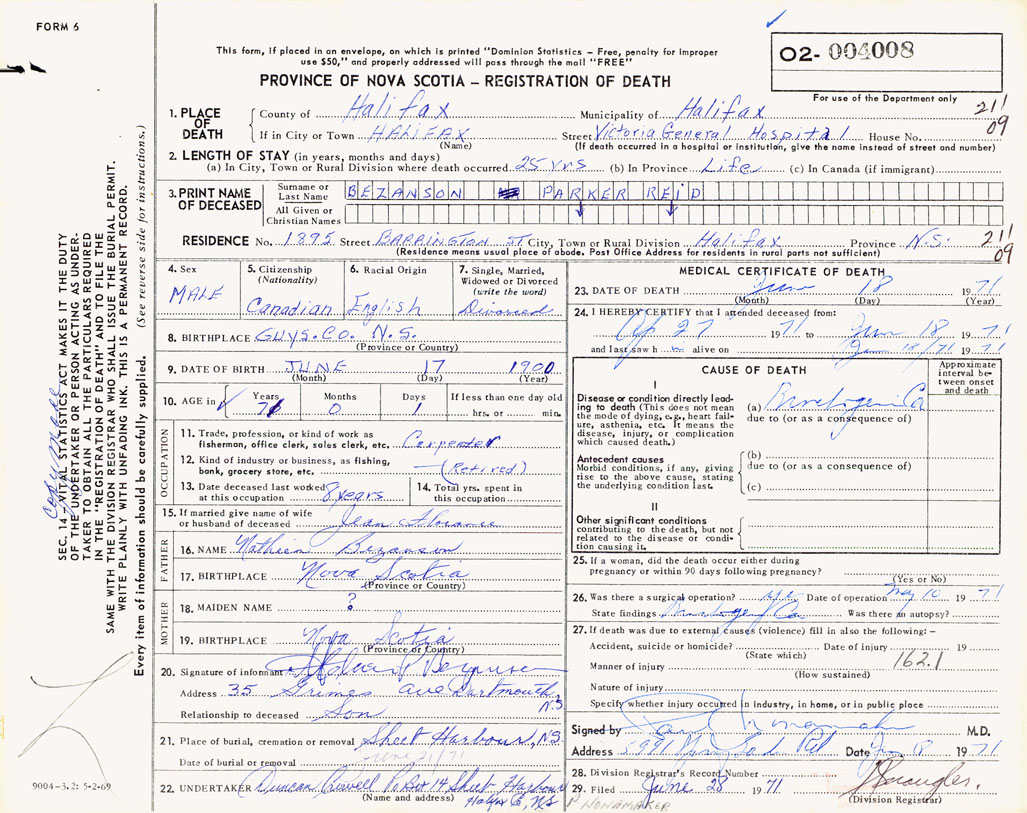 FORM 6
This form, if placed in an envelope, on which is printed "Dominion Statistics – Free, penalty for improper
use $50," and properly addressed will pass through the mail "FREE"
O2- 004008
PROVINCE OF NOVA SCOTIA – REGISTRATION OF DEATH
For use of the Department only
1. PLACE OF DEATH
County of Halifax Municipality of Halifax 211
If in City or Town HALIFAX Street Victoria General Hospital House No. 09
(Name) (If death occurred in a hospital or institution, give the name instead of street and number)
2. LENGTH OF STAY (in years, months and days)
(a) In City, Town or Rural Division where death occurred 25 yrs (b) In Province Life (c) In Canada (if immigrant)
3. PRINT NAME OF DECEASED
Surname or Last Name BEZANSON PARKER REID
All Given or Christian Names
RESIDENCE No. 1895 Street BARRINGTON ST City, Town or Rural Division Halifax Province N.S. 211
(Residence means usual place of abode. Post Office Address for residents in rural parts not sufficient) 09
4. Sex
MALE
5. Citizenship
(Nationality)
Canadian
6. Racial Origin
English
7. Single, Married,
Widowed or Divorced
(write the word)
Divorced
8. BIRTHPLACE GUYS. CO. N.S.
(Province or Country)
9. DATE OF BIRTH JUNE 17 1900
(Month) (Day) (Year)
10. AGE in
Years 71
Months 0
Days 1
If less than one day old
hrs. or min.
OCCUPATION
11. Trade, profession, or kind of work as
fisherman, office clerk, sales clerk, etc. Carpenter
12. Kind of industry or business, as fishing,
bank, grocery store, etc. (Retired)
13. Date deceased last worked
at this occupation 8 years
14. Total yrs. spent in
this occupation
15. If married give name of wife
or husband of deceased Jean
FATHER
16. NAME Bezanson
17. BIRTHPLACE Nova Scotia
(Province or Country)
MOTHER
18. MAIDEN NAME ?
19. BIRTHPLACE Nova Scotia
(Province or Country)
20. Signature of informant
Address 35 Grimes Ave Dartmouth
N.S
Relationship to deceased Son
21. Place of burial, cremation or removal Sheet Harbour, NS
Date of burial or removal June 21/71
22. UNDERTAKER Duncan Crowell PO Box 14 Sheet Harbour
(Name and address) Halifax Co, NS
MEDICAL CERTIFICATE OF DEATH
23. DATE OF DEATH June 18 1971
(Month) (Day) (Year)
24. I HEREBY CERTIFY that I attended deceased from:
Ap 27 1971 to Jun 18 1971
and last saw h im alive on June 18/71 1971
CAUSE OF DEATH
Approximate
interval be-
tween onset
and death
I
Disease or condition directly lead-
ing to death (This does not mean
the mode of dying, e.g., heart fail-
ure, asthenia, etc. It means the
disease, injury, or complication
which caused death.)
(a) Bronchogenic Ca
due to (or as a consequence of)
Antecedent causes
Morbid conditions, if any, giving
rise to the above cause, stating
the underlying condition last.
(b)
due to (or as a consequence of)
(c)
II
Other significant conditions
contributing to the death, but not
related to the disease or condi-
tion causing it.
25. If a woman, did the death occur either during
pregnancy or within 90 days following pregnancy?
(Yes or No)
26. Was there a surgical operation? yes Date of operation May 10 1971
State findings Bronchogenic Ca Was there an autopsy?
27. If death was due to external causes (violence) fill in also the following: –
Accident, suicide or homicide? Date of injury 19
(State which)
162.1
Manner of injury
(How sustained)
Nature of injury
Specify whether injury occurred in industry, in home, or in public place
Signed by M.D.
Address 5991 Date Jun 18 1971
28. Division Registrar's Record Number
29. Filed June 28 1971
(Division Registrar)
NONAMAKER
SEC. 14 – VITAL STATISTICS ACT MAKES IT THE DUTY
OF THE UNDERTAKER OR PERSON ACTING AS UNDER-
TAKER TO OBTAIN ALL THE PARTICULARS REQUIRED
IN THE "REGISTRATION OF DEATH" AND TO FILE THE
SAME WITH THE DIVISION REGISTRAR WHO SHALL ISSUE THE BURIAL PERMIT.
WRITE PLAINLY WITH UNFADING INK. THIS IS A PERMANENT RECORD.
Every item of information should be carefully supplied. (See reverse side for instructions.)
copy made
9004-3.2: 5-2-69